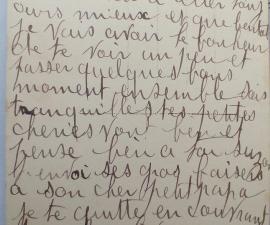 ours mieux et que bientot
je vais avoir le bonheur
de te voir un peu et
passer quelques bons
moment ensemble sois
tranquilles tes petites
cheries vont bien et
pense bien a toi
envoi ses gros baisers
à son cher petit papa
je te quitte en